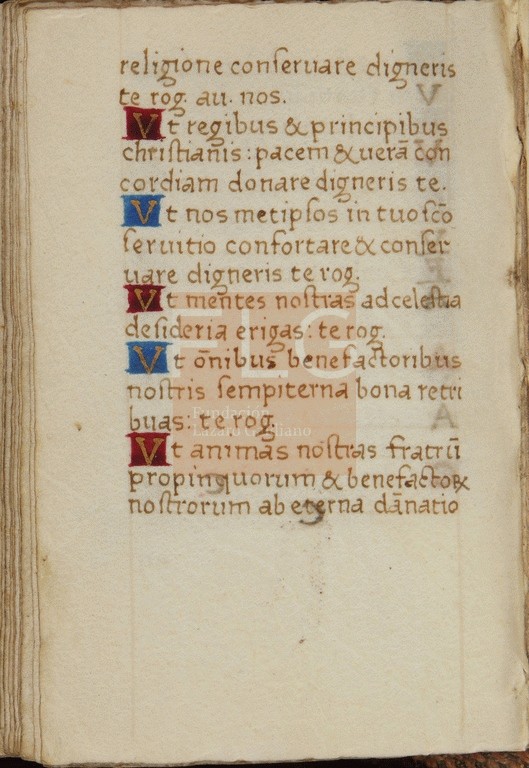 religione conſeruare digneris
te rog. au. nos.
Vt regibus & principibus
chriſtianis: pacem & uerā con
cordiam donare digneris te.
Vt nos metipſos in tuo ſcō
ſeruitio confortare & conſer
uare digneris te rog.
Vt mentes noſtras ad celeſtia
deſideria erigas: te rog.
Vt ōnibus benefactoribus
noſtris ſempiterna bona retri
buas: te rog.
Vt animas noſtras fratrū
propinquorum & benefactoꝝ
noſtrorum ab eterna dānatio
FLG
Fundación
Lázaro Galdiano